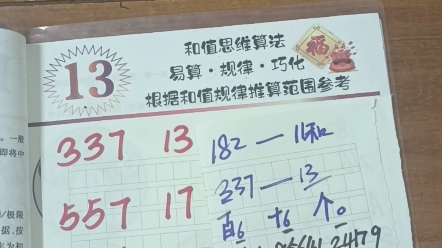 13
和值思维算法
易算·规律·巧化
根据和值规律推算范围参考
福
337 13
182 — 11和
557 17
337 — 13
百6 十6 个0
24179
一般
即将中
极限
据,按